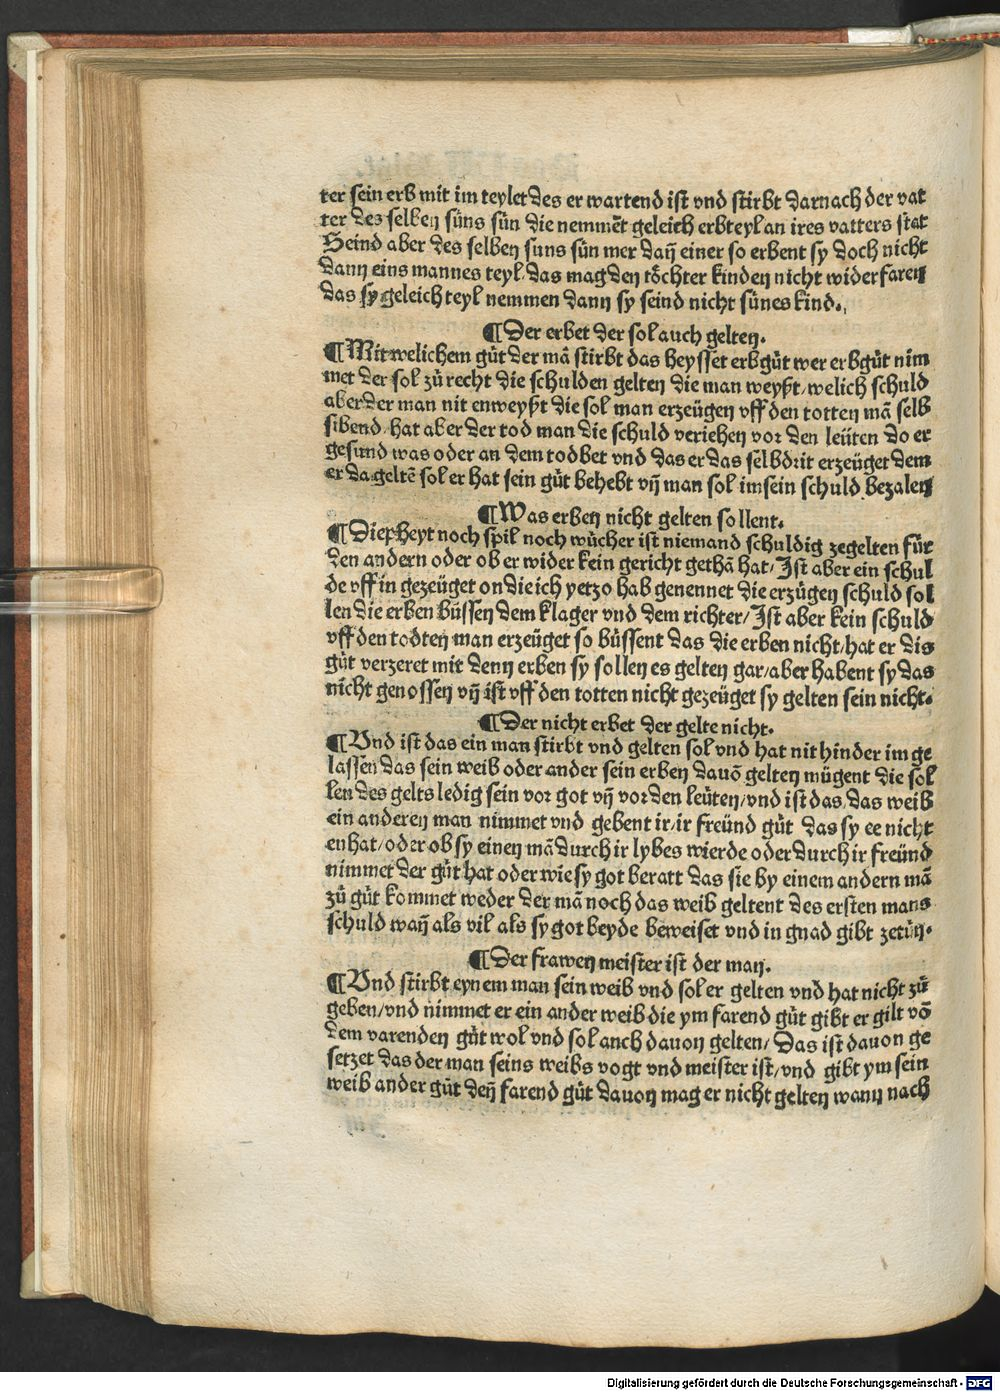 ter sein erb mit im teylet des er wartend ist vnd stirbt darnach der vat
ter des selben süns sün die nemmēt geleich erbteyl an ires vatters stat
Seind aber des selben suns sün mer dañ einer so erbent sy doch nicht
dann eins mannes teyl/das mag den töchter kinden nicht widerfaren
das sy geleich teyl nemmen dann sy seind nicht sünes kind.
¶Der erbet der sol auch gelten.
¶Mit welichem gůt der mā stirbt das heysset erbgůt wer erbgůt nim
met der sol zů recht die schulden gelten die man weyßt/welich schuld
aber der man nit enweyßt die sol man erzeügen vff den totten mā selb
sibend/hat aber der tod man die schuld veriehen vor den leüten do er
gesund was oder an dem todbet vnd das er das selbdrit erzeüget dem
er da geltē sol er hat sein gůt behebt vñ man sol im sein schuld bezalen
¶Was erben nicht gelten sollent.
¶Diepheyt noch spil noch wůcher ist niemand schuldig zegelten für
den andern oder ob er wider kein gericht gethā hat/Ist aber ein schul
de vff in gezeüget on die ich yetzo hab genennet die erzügen schuld sol
len die erben bůssen dem klager vnd dem richter/Ist aber kein schuld
vff den todten man erzeüget so bůssent das die erben nicht/hat er dis
gůt verzeret mit denn erben sy sollen es gelten gar/aber habent sy das
nicht genossen vñ ist vff den totten nicht gezeüget sy gelten sein nicht.
¶Der nicht erbet der gelte nicht.
¶Vnd ist das ein man stirbt vnd gelten sol vnd hat nit hinder im ge
lassen das sein weib oder ander sein erben dauō gelten mügent die sol
len des gelts ledig sein vor got vñ vor den leüten/vnd ist das/das weib
ein anderen man nimmet vnd gebent ir/ir freünd gůt das sy ee nicht
enhat/oder ob sy einen mā durch ir lybes wierde oder durch ir freünd
nimmet der gůt hat oder wie sy got beratt das sie by einem andern mā
zů gůt kommet weder der mā noch das weib geltent des ersten mans
schuld wañ als vil als sy got beyde beweiset vnd in gnad gibt zetůn.
¶Der frawen meister ist der man.
¶Vnd stirbt eynem man sein weib vnd sol er gelten vnd hat nicht zů
geben/vnd nimmet er ein ander weib die ym farend gůt gibt er gilt vō
dem varenden gůt wol vnd sol anch dauon gelten/Das ist dauon ge
setzet das der man seins weibs vogt vnd meister ist/vnd gibt ym sein
weib ander gůt deñ farend gůt dauon mag er nicht gelten wann nach
Digitalisierung gefördert durch die Deutsche Forschungsgemeinschaft - DFG